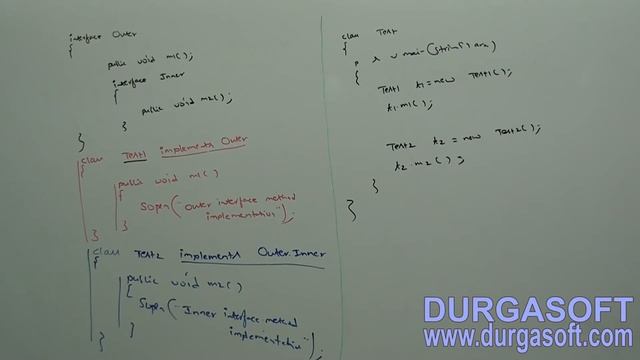 interface Outer
{
public void m1();
interface Inner
{
public void m2();
}
}
class Test1 implements Outer
{
public void m1()
{
Sopln("Outer interface method
implementation");
}
}
class Test2 implements Outer.Inner
{
public void m2()
{
Sopln("Inner interface method
implementation");
}
}
class Test
{
p s v main(String[] args)
{
Test1 t1=new Test1();
t1.m1();
Test2 t2=new Test2();
t2.m2();
}
}
DURGASOFT
www.durgasoft.com